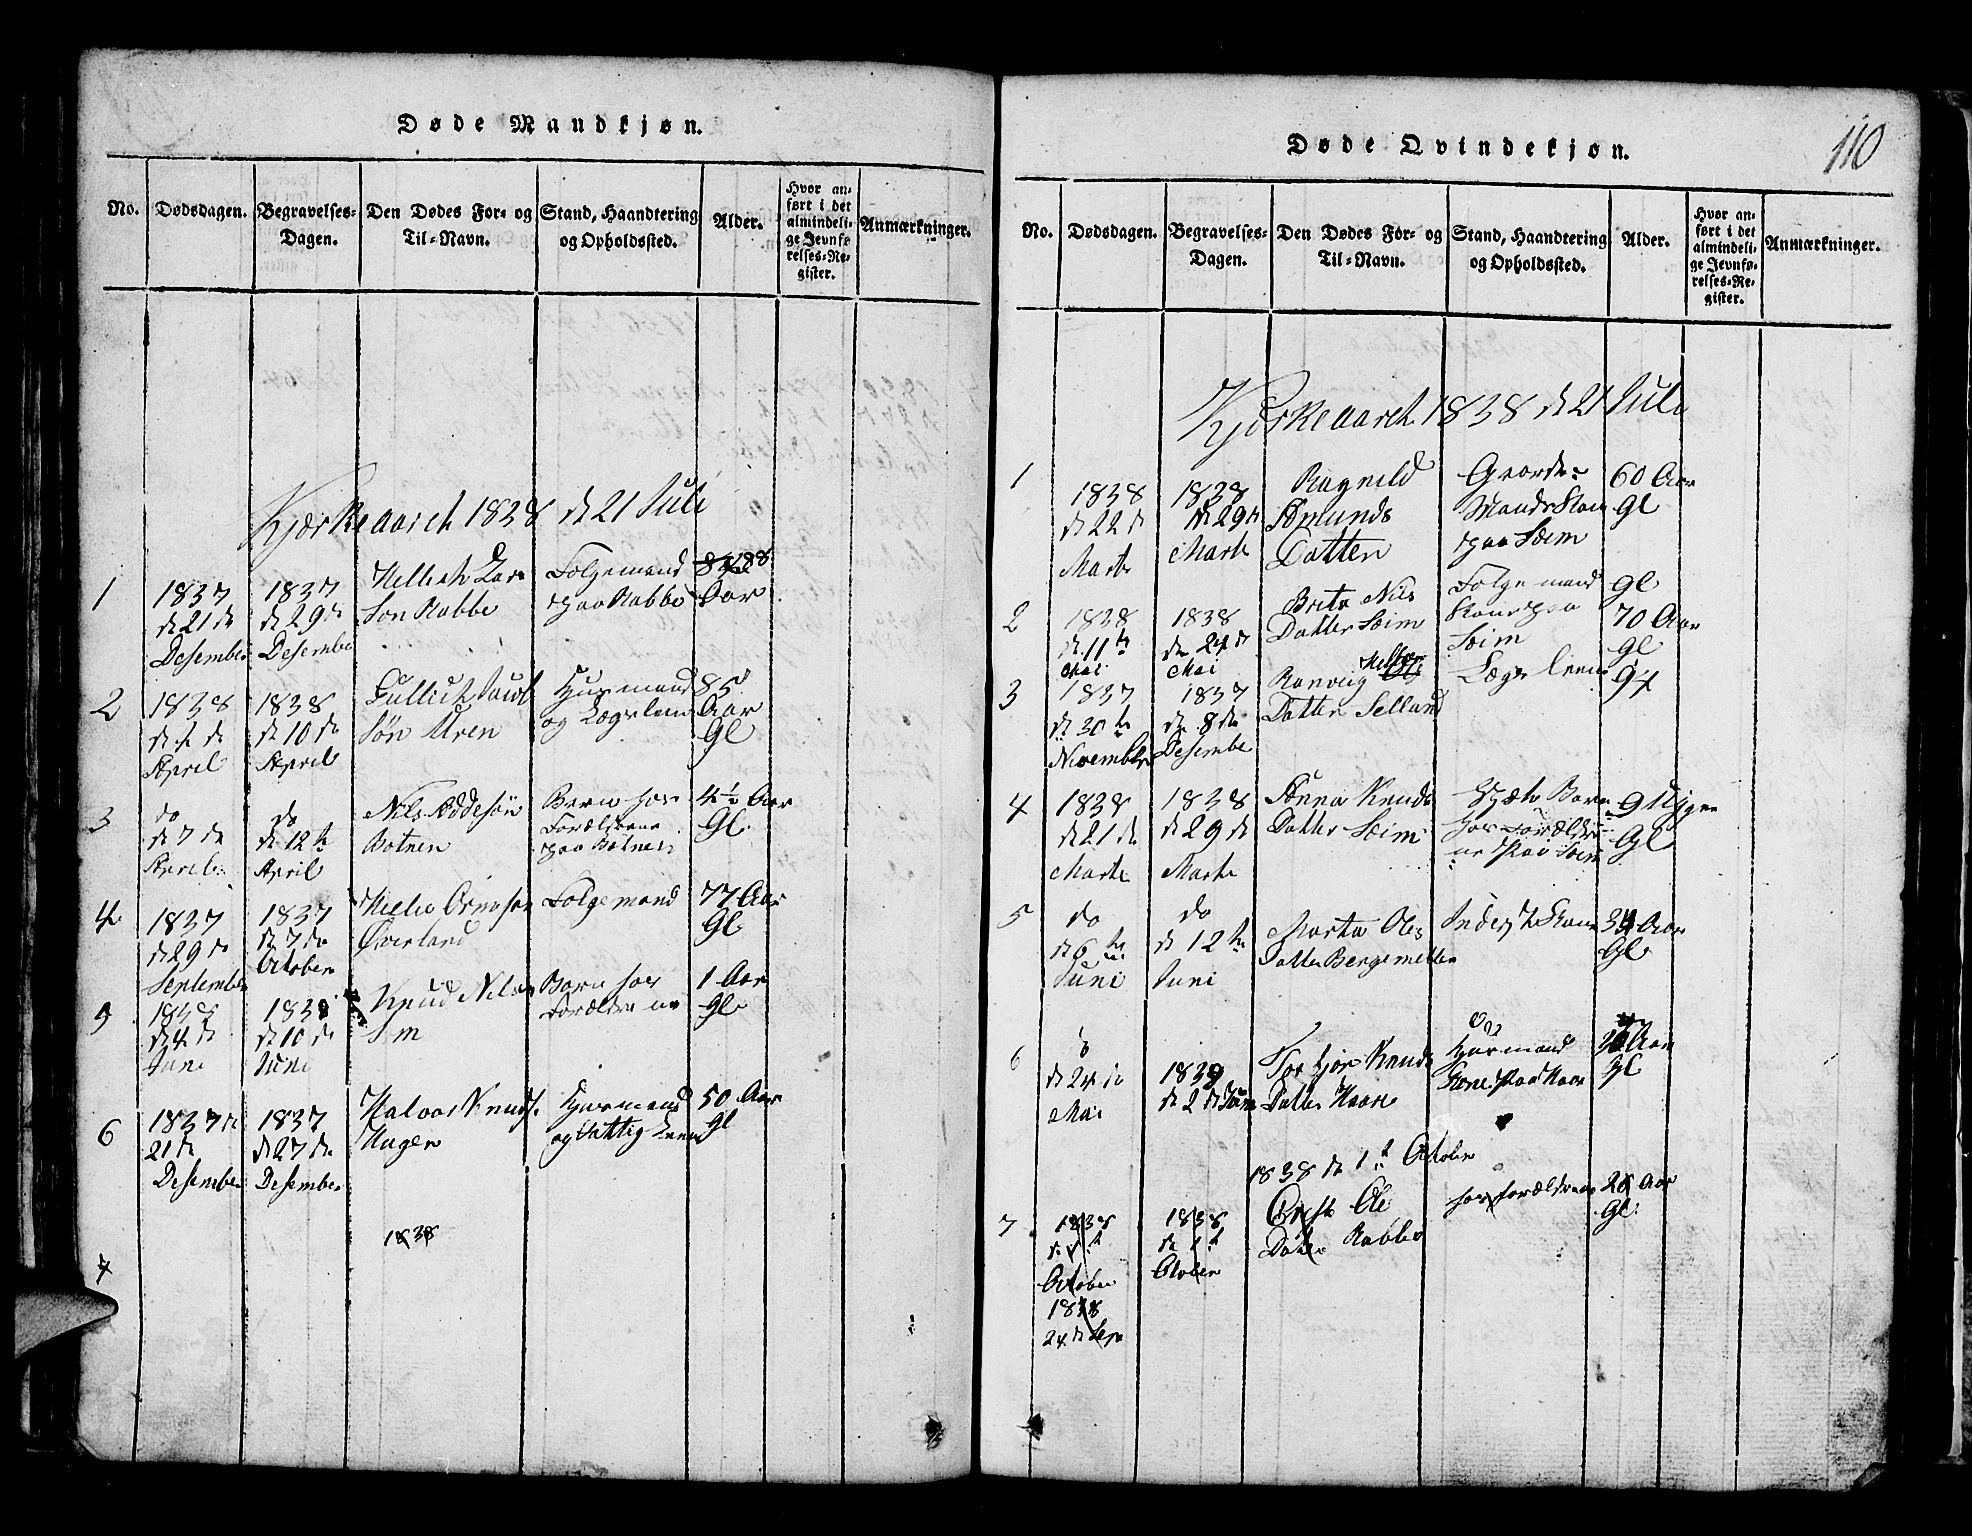 Døde Mandkjøn.
No.
Dødsdagen.
Begravelses-
Dagen.
Den Dødes For- og
Til-Navn.
Stand, Haandtering
og Opholdssted.
Alder.
Hvor an-
ført i det
almindeli-
ge Jevnfø
relses-Re-
gister.
Anmærkninger.
Kjærkeaaret 1838 d 21 Juli
1
1837
d 21 d
Desember
1837
d 29 d
Desember
Lar
søn Rabbe
Folgemand
paa Rabbe
88
Aar
2
1838
April
1838
d 10 de
April
søn Uren
Husmand
og Lægslem
85
Aar
Gl
3
do
d 7 de
April
do
d 12 te
April
Nils Oddesøn
Botnen
Barn hos
Forældrene
paa Botnen
4½ Aar
Gl
4
1837
d 29 d
September
1837
d 7 de
October
Helie Ornøson
Øverland
Folgemand
77 Aar
Gl
5
1838
d 4 d
Juni
1838
d 10 d
Juni
Knud Nilsøn
Barn hos
Forældrene
1 Aar
gl
6
1837 d
21 d
Desember
1837
d 27 de
Desember
Halvor Knuds
Hagen
Husmand
og Fattig Lem
50 Aar
gl
7
1838
Døde Qvindekjøn.
110
No.
Dødsdagen.
Begravelses-
Dagen.
Den Dødes For- og
Til-Navn.
Stand, Haandtering
og Opholdssted.
Alder.
Hvor an-
ført i det
almindeli-
ge Jevnfø-
relses-Re-
gister.
Anmærkninger.
Kjærkeaaret 1838 d 21 Juli
1
1838
d 22 d
Marts
1838
d 29 d
Marts
Ragnild
Datter
Gaarde-
Mands Kone
paa Søim
60 Aar
gl
2
1838
d 11 te
Mai
1838
de 24 d
Mai
Brita Nils
Datter Søim
Folgemand
Kone paa
Søim
gl
70 Aar
gl
3
1837
d 30 te
November
1837
de 8 de
Desembe
Ranveig
Datter Selland
Lægs Lem
4
1838
d 21 de
Marts
1838
d 29 d
Marts
Anna Knuds
Datter Søim
Spæte Barn
hos Forældre
ne paa Søim
9 Uger
Gl
5
do
d 6 te
Juni
do
d 12 te
Juni
Marta Oles
Datter
Inderst Kone
Aar
Gl
6
d 24 de
Mai
d 2 d Juni
Torbjør Knuds
Datter Haare
Husmand
Kone paa Haare
Aar
gl
1838 d 1 t Octobr
7
1838
October
1838
24 d Sep
1838
d 1 t
October
Ole
Datter Rabbe
hos Forældrene
Aar
Gl